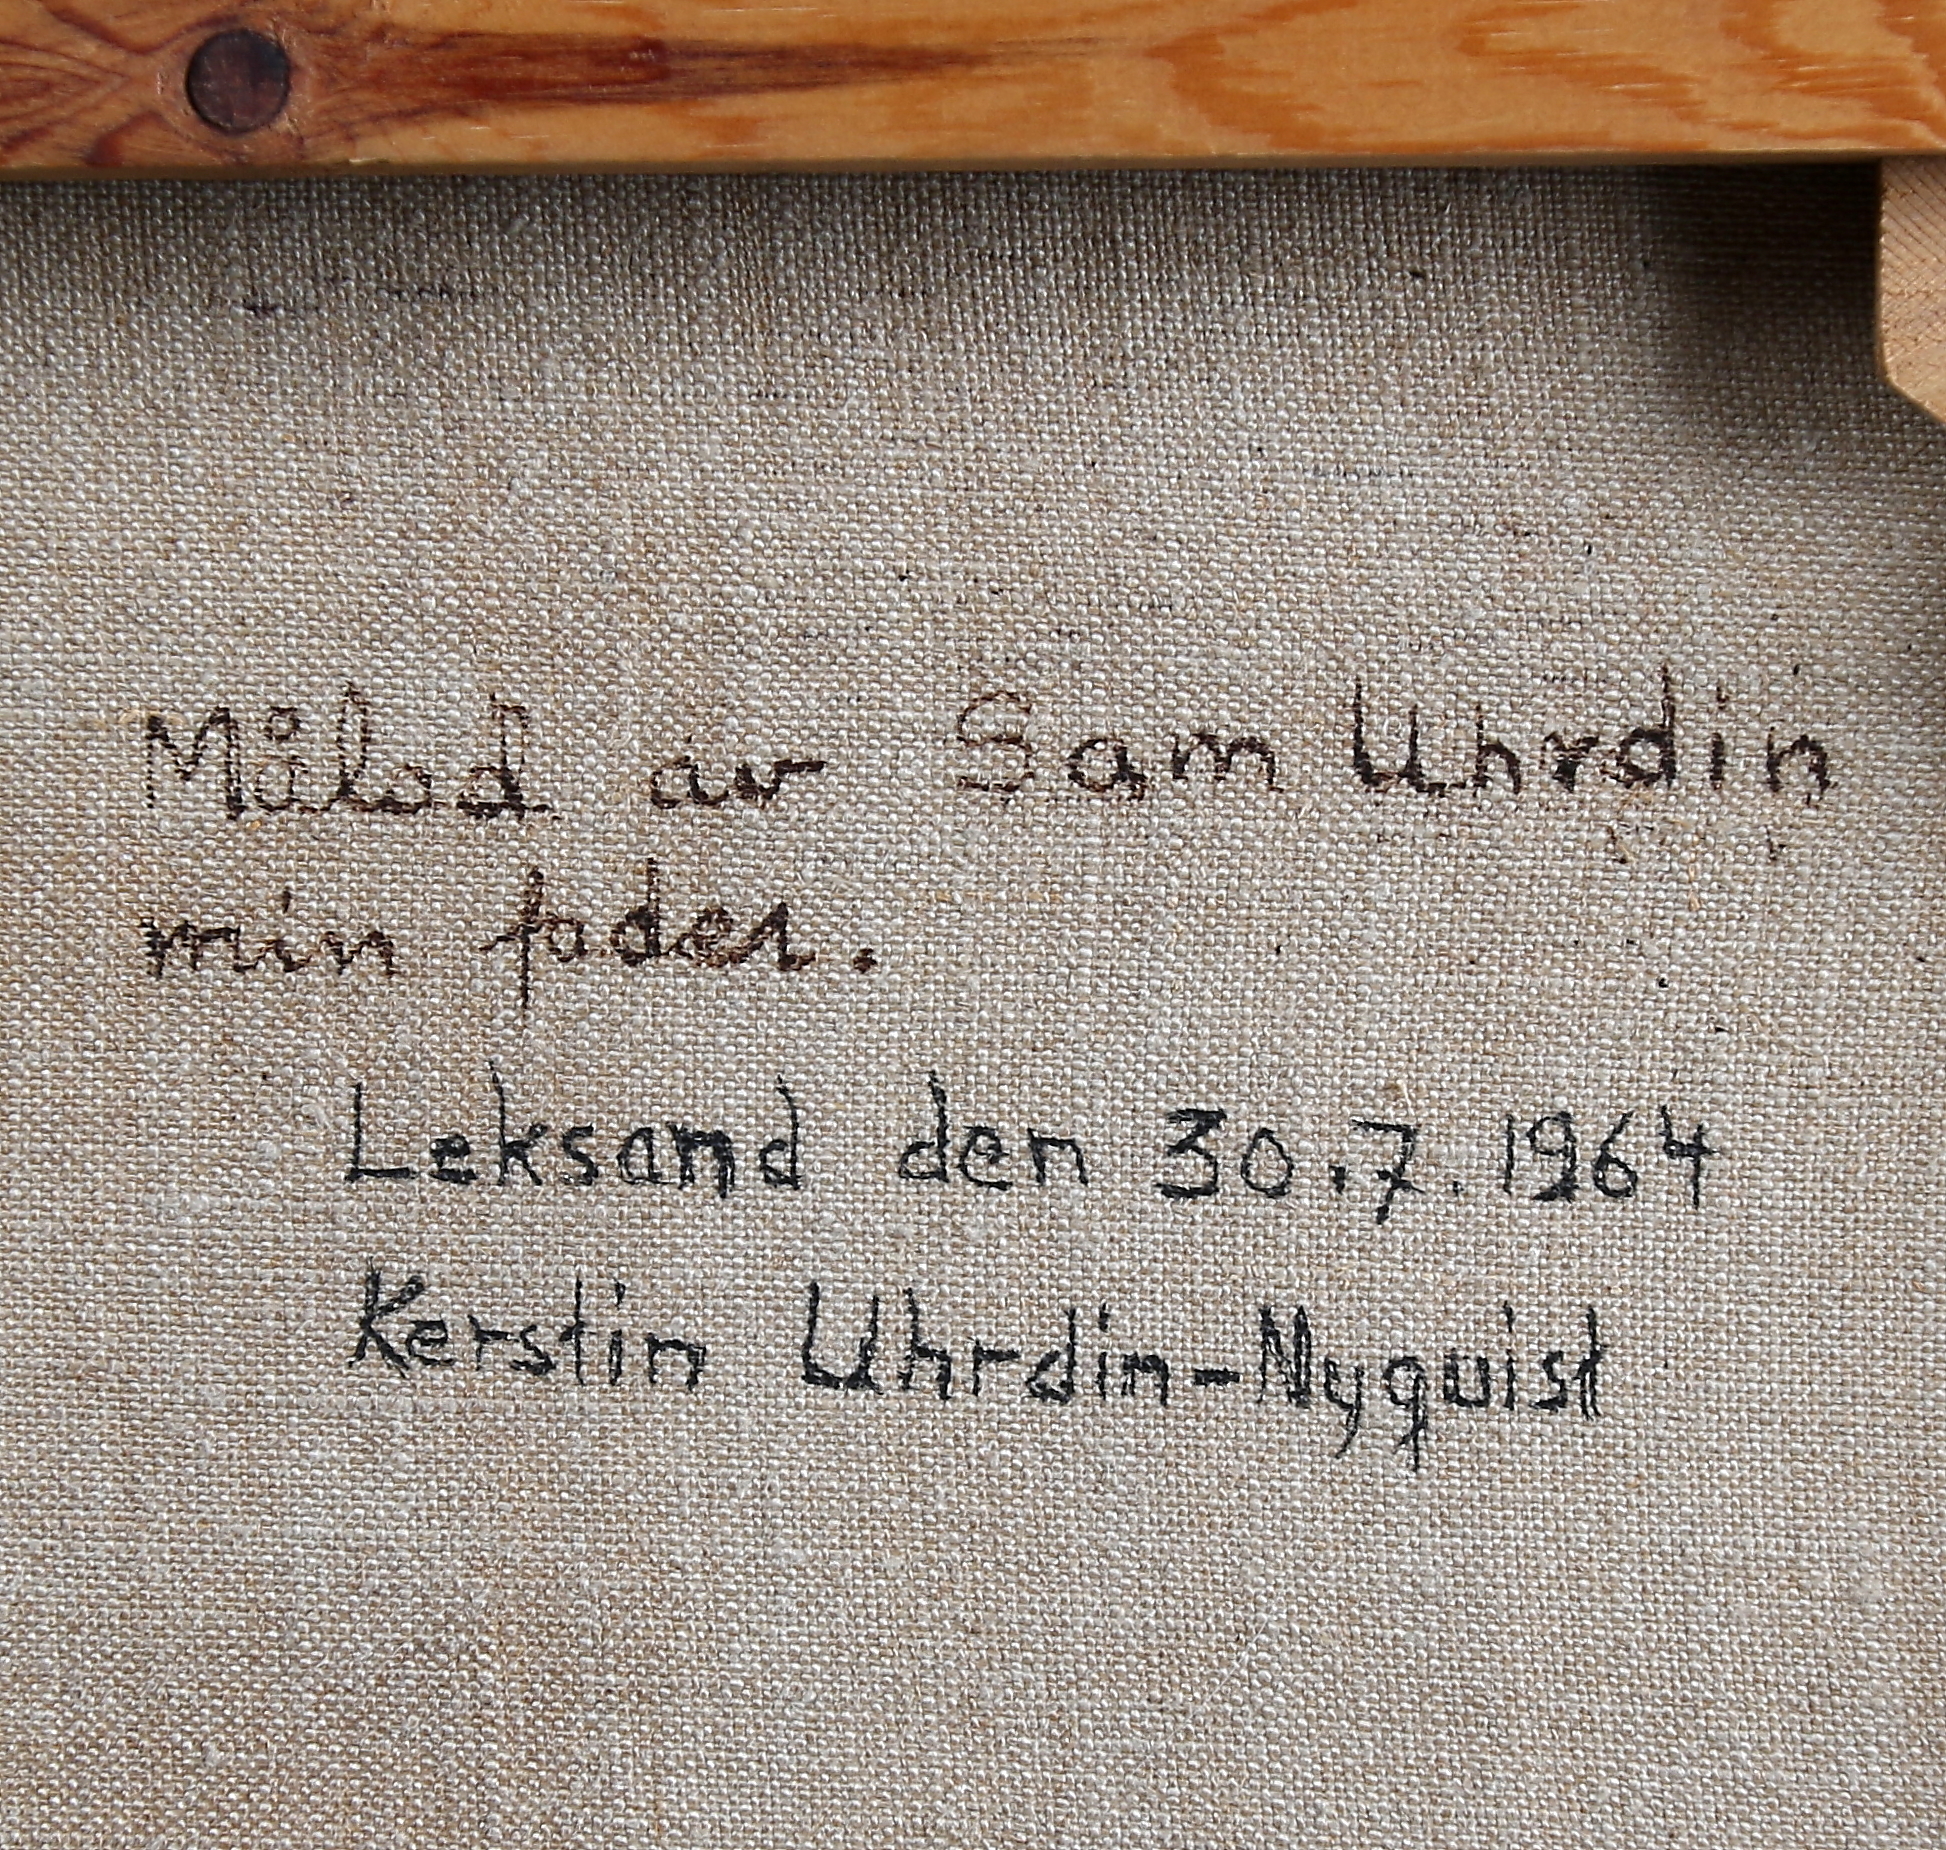 Målad av Sam Uhrdin
min fader.
Leksand den 30.7.1964
Kerstin Uhrdin-Nyquist